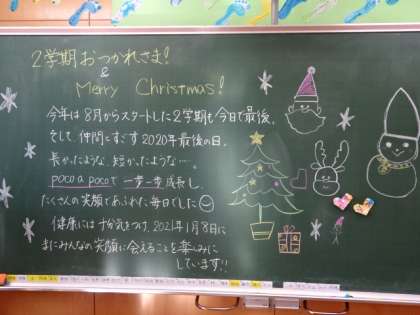 2学期おつかれさま!
&
Merry Christmas!
今年は8月からスタートした2学期も今日で最後。
そして、仲間とすごす2020年最後の日。
長かったような、短かったような…。
poco a pocoで一歩一歩成長し、
たくさんの笑顔であふれた毎日でした
健康には十分気をつけ、2021年1月8日に
またみんなの笑顔に会えることを楽しみに
しています!!